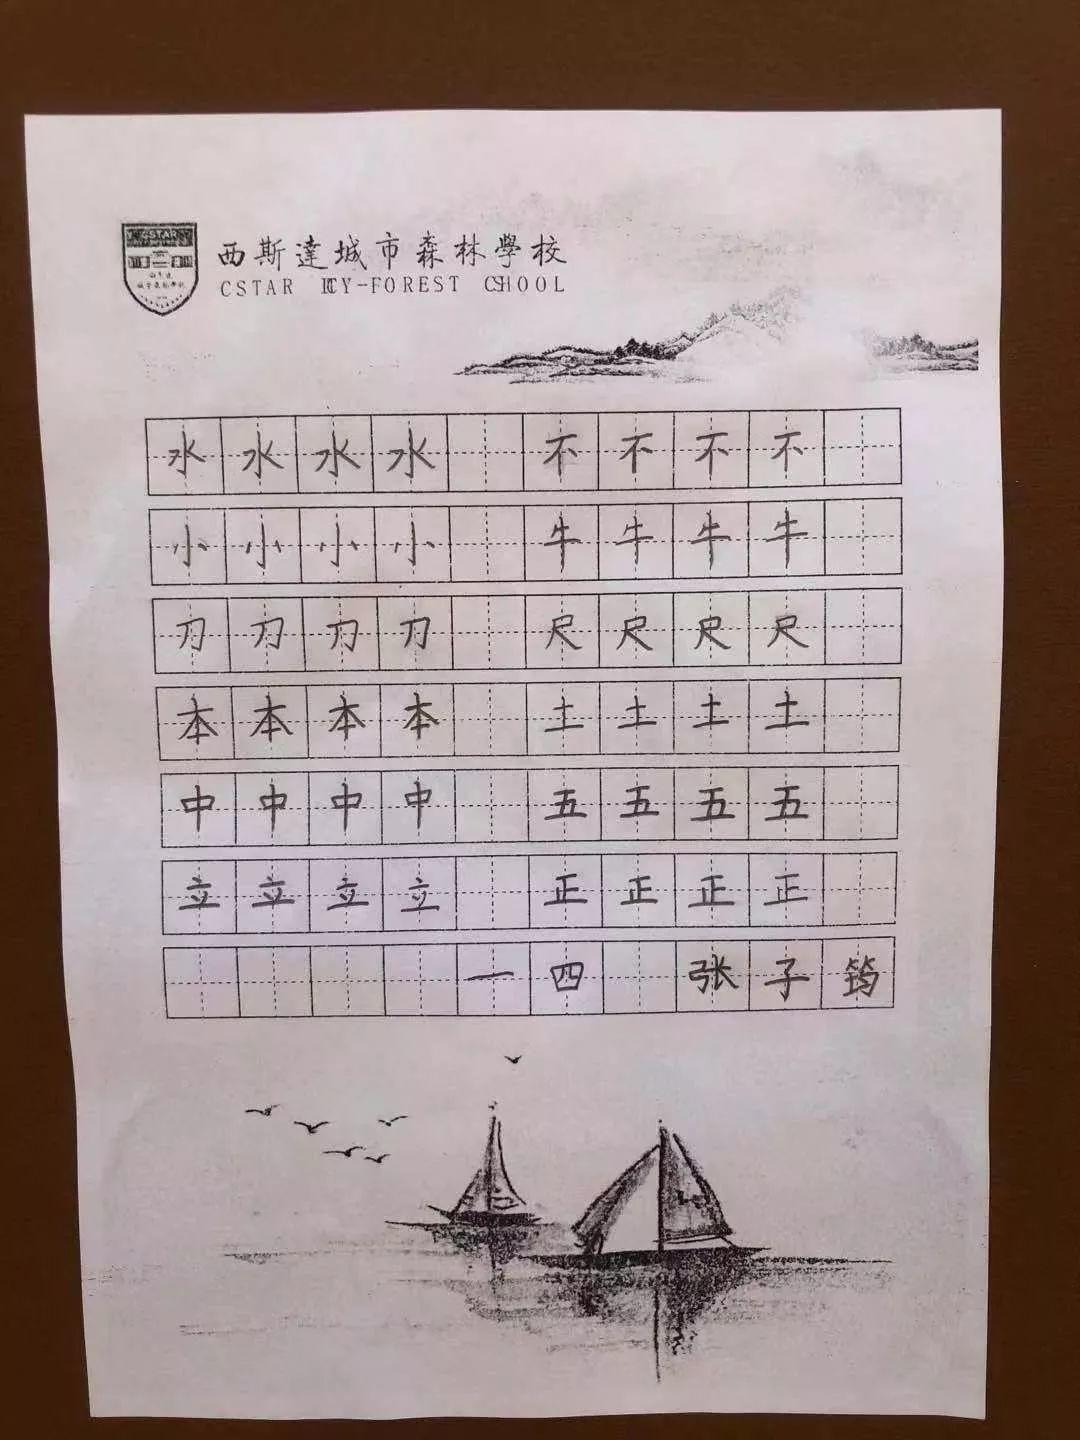 CSTAR
西斯達城市森林學校
CSTAR CITY-FOREST SCHOOL
水水水水 不不不不
小小小小 牛牛牛牛
刀刀刀刀 尺尺尺尺
本本本本 土土土土
中中中中 五五五五
立立立立 正正正正
一四 张子筠